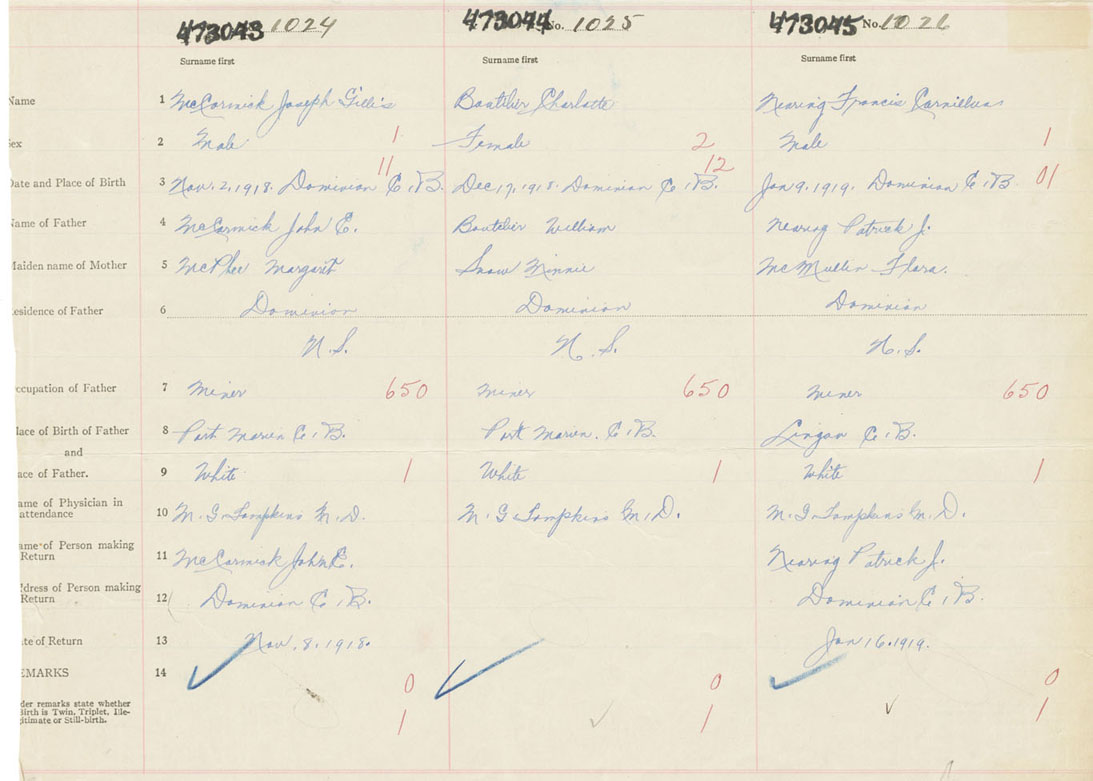 473043 1024 473044 No. 1025 473045 No. 1026
Surname first Surname first Surname first
Name 1 McCormick Joseph Gillis Boutilier Charlotte Nearing Francis Cornillius
ex 2 Male 1 Female 2 Male 1
11 12
Date and Place of Birth 3 Nov. 2, 1918. Dominion C.B. Dec 17, 1918. Dominion C.B. Jan 9. 1919. Dominion C.B. 01
Name of Father 4 McCormick John C. Boutilier William Nearing Patrick J.
Maiden name of Mother 5 McPhee Margaret Snow Minnie McMullin Flora.
esidence of Father 6 Dominion Dominion Dominion
N.S. N.S. N.S.
ccupation of Father 7 Miner 650 Miner 650 Miner 650
lace of Birth of Father 8 Port Marien C.B. Port Marien. C.B. Lingan C.B.
and
ace of Father. 9 White 1 White 1 White 1
ame of Physician in
attendance 10 M. G. Tompkins M.D. M. G. Tompkins M.D. M. G. Tompkins M.D.
ame of Person making
Return 11 McCormick John C. Nearing Patrick J.
ddress of Person making
Return 12 Dominion C.B. Dominion C.B.
ate of Return 13 Nov. 8. 1918. Jan 16. 1919.
EMARKS 14 0 0 0
der remarks state whether
Birth is Twin, Triplet, Ille-
gitimate or Still-birth. 1 1 1